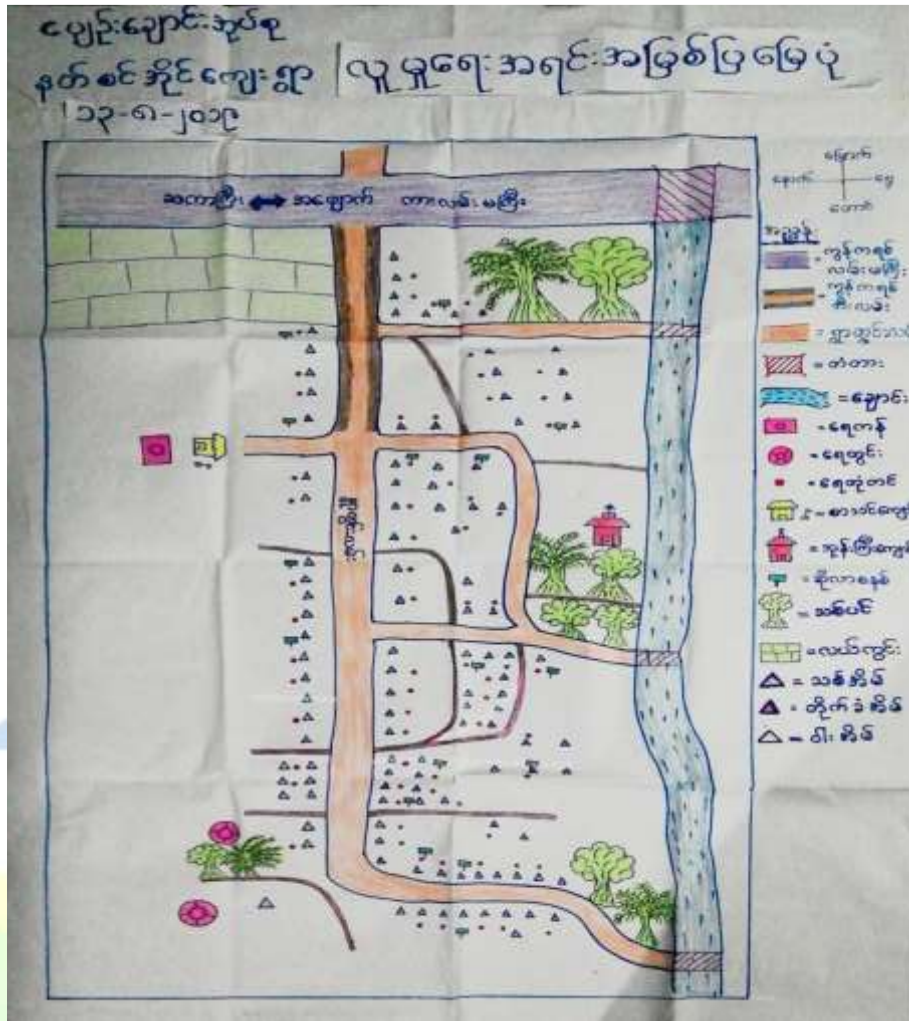 ပျဉ်းချောင်းအုပ်စု
နတ်စင်အိုင်ကျေးရွာ လူမှုရေးအရင်းအမြစ်ပြမြေပုံ
၁၃-၈-၂၀၁၉
ဆကာကြီး အချောက် ကားလမ်းမကြီး
မြောက်
နောက် ရှေ့
တောင်
ကွန်ကရစ်
လမ်းမကြီး
ကွန်ကရစ်
= ရွာတွင်းလမ်း
= တံတား
= ချောင်း
= ရေကန်
= ရေတွင်း
= ရေတုံကင်
= ဆိုလာစနစ်
= သစ်ပင်
= လယ်ကွင်း
= သစ်အိမ်
= တိုက်ခံအိမ်
= ဝါးအိမ်